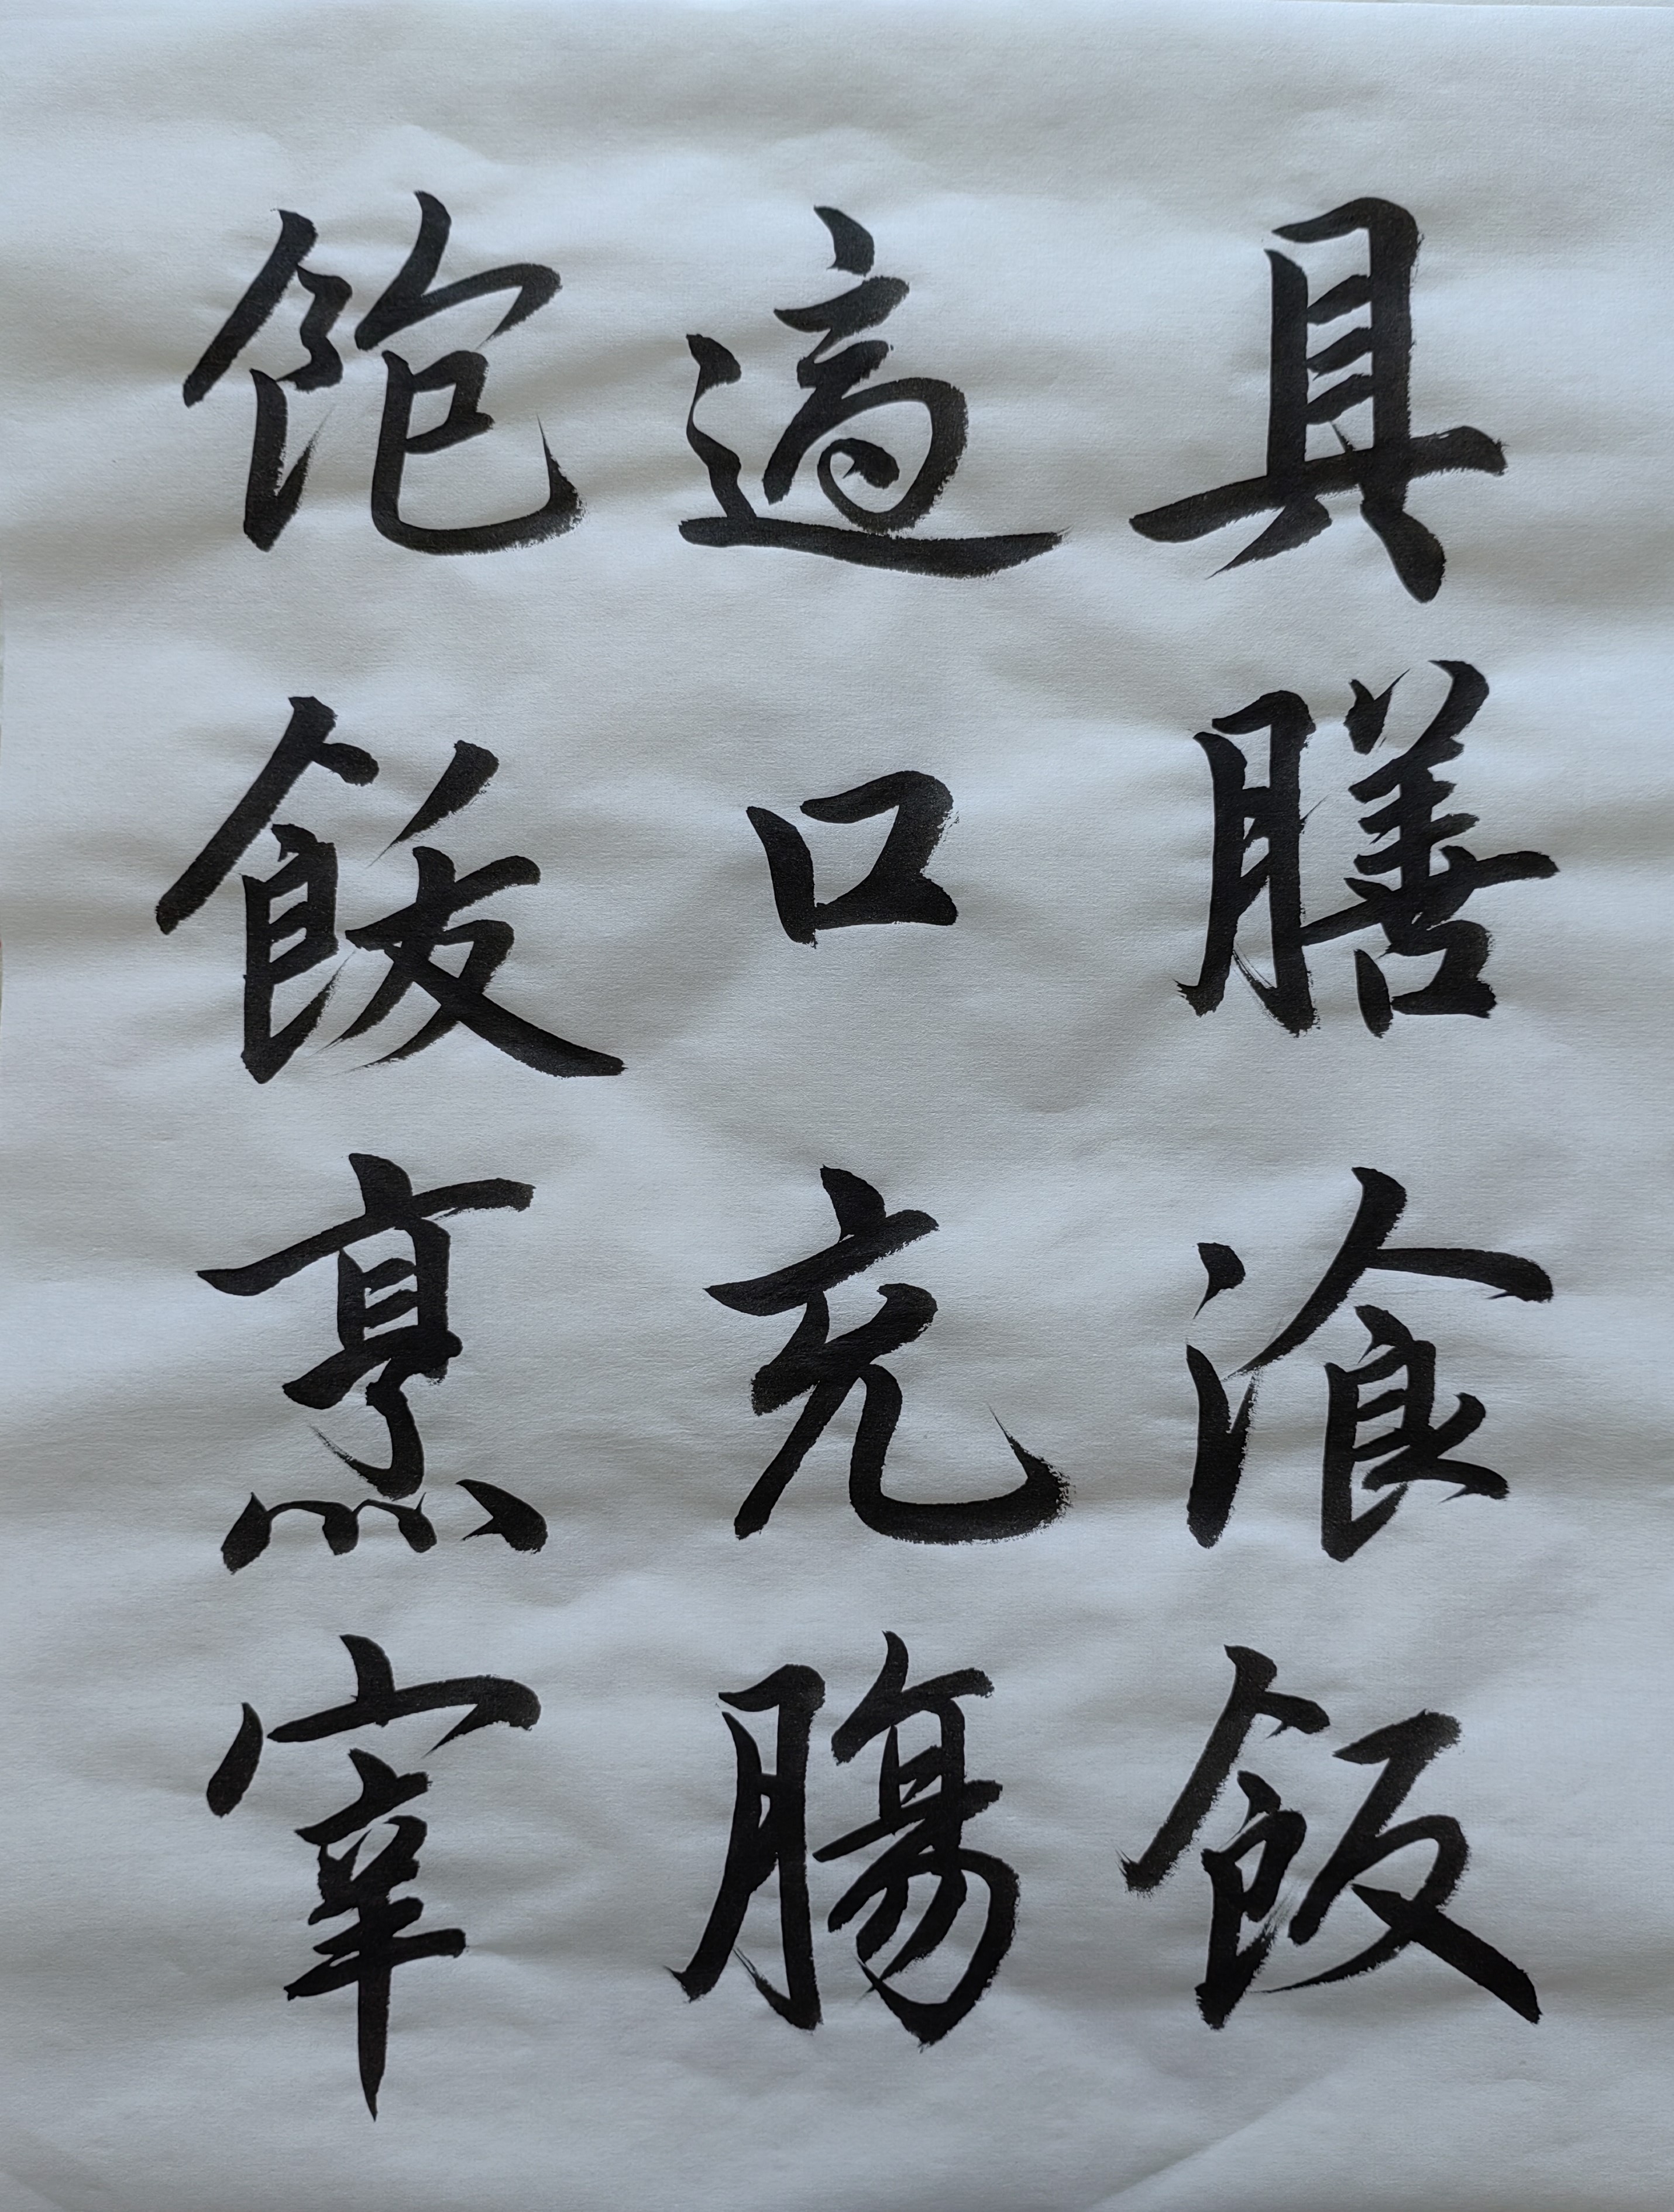 具膳湌飯
適口充腸
飽飫烹宰